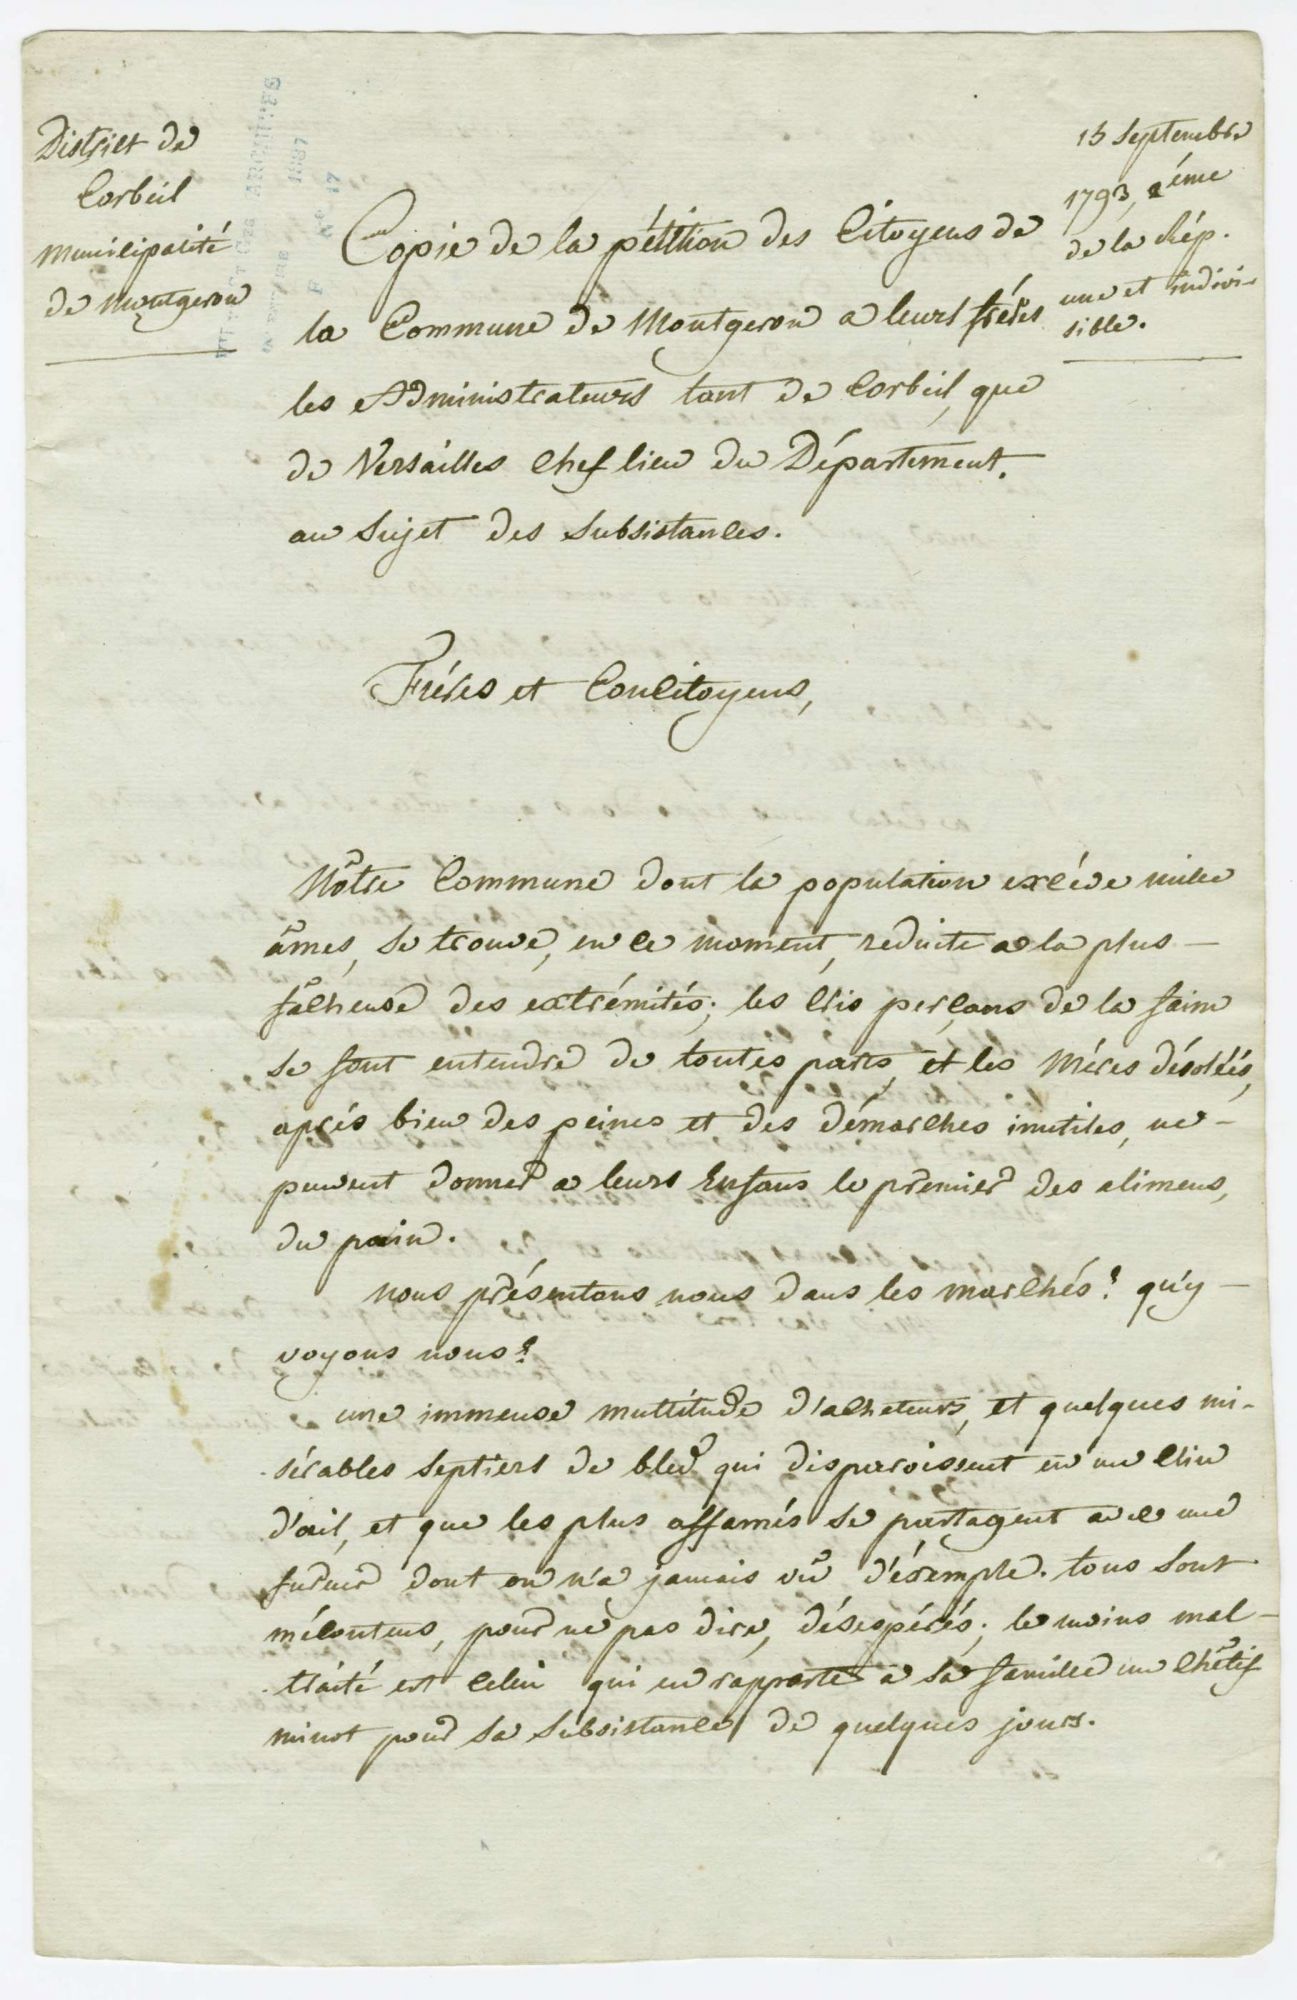 District de
Corbeil
Municipalité
de Montgeron
15 Septembre
1793, 2ème
de la Rép.
une et indivi-
sible.
Copie de la pétition des Citoyens de
la Commune de Montgeron a leurs fréres
les Administrateurs tant de Corbeil, que
de Versailles Chef lieu du Département.
au sujet des subsistances.
Fréres et Concitoyens,
Nôtre Commune dont la population excéde mille
âmes, se trouve, en ce moment, reduite a la plus
fâcheuse des extrémités; les cris perçans de la faim
se font entendre de toutes parts, et les Méres désolées,
aprés bien des peines et des démarches inutiles, ne
peuvent donner a leurs Enfans le premier des alimens,
du pain.
nous présentons nous dans les marchés? qu'y
voyons nous?
une immense multitude d'acheteurs, et quelques mi-
sérables septiers de bled qui disparoissent en un clin
d'œil, et que les plus affamés se partagent avec une
fureur dont on n'a jamais vû d'éxemple. tous sont
mécontens, pour ne pas dire, désespérés; le moins mal-
traité est celui qui en rapporte a sa famille un chêtif
minot pour sa subsistance de quelques jours.